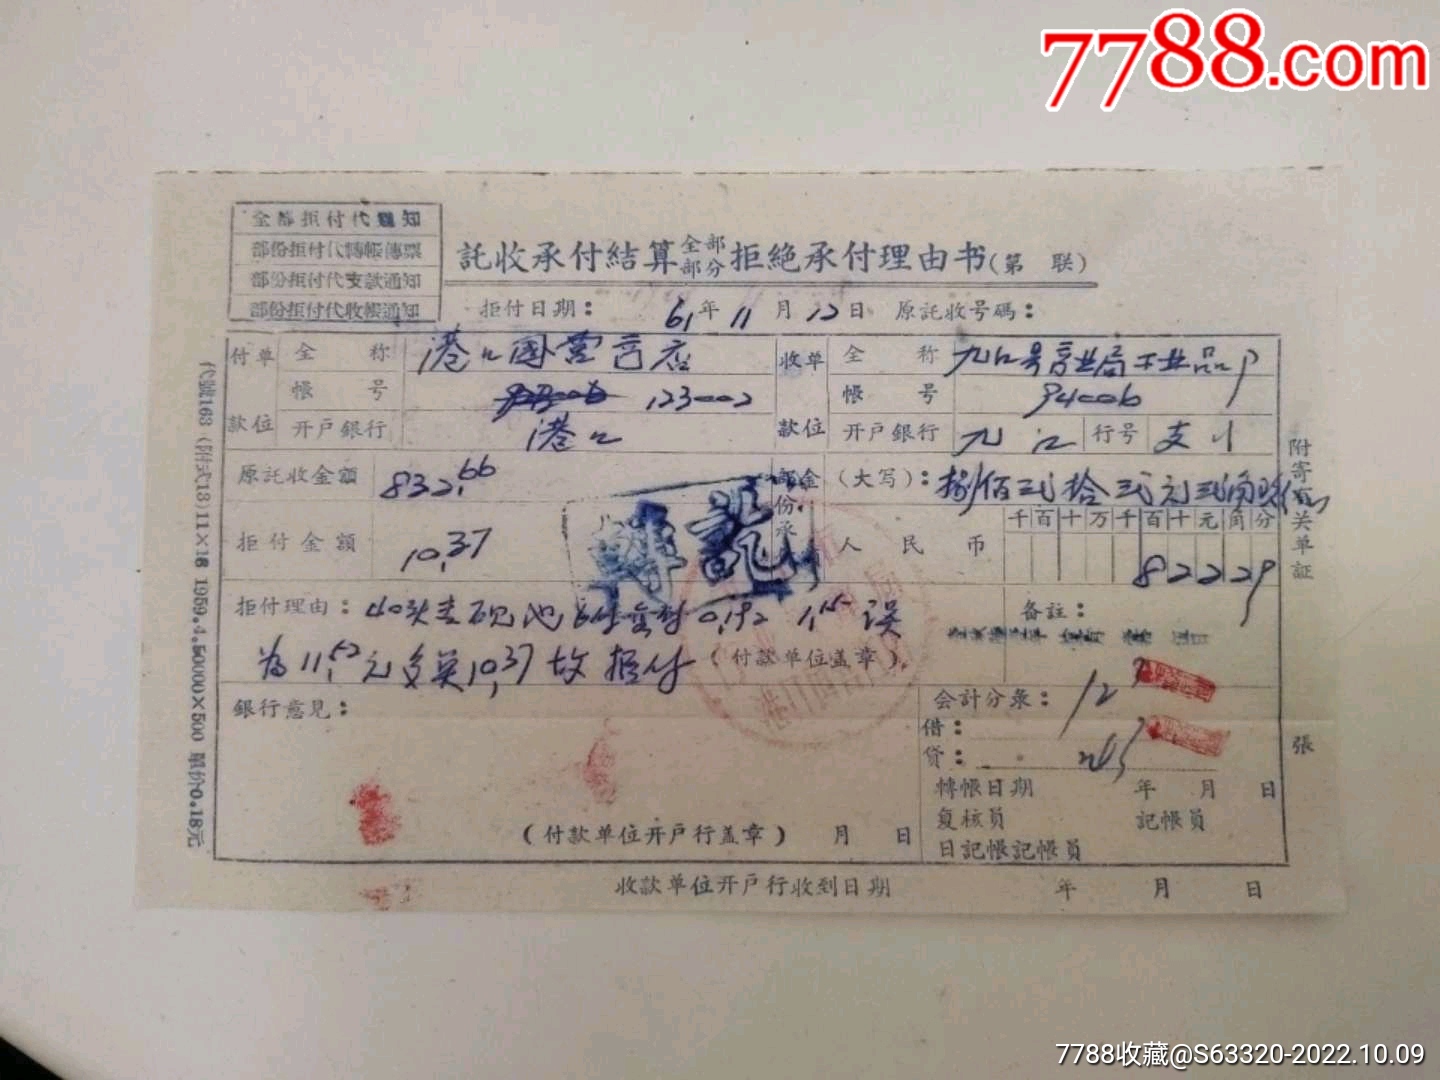 7788.com
全部拒付代通知
部份拒付代轉帳傳票
部份拒付代支款通知
部份拒付代收帳通知
託收承付結算全部部分拒絕承付理由书(第 联)
拒付日期: 61年11月12日 原託收号碼:
付款单位 全称 港口国营商店
帳号 123002
开戶銀行 港口
收款单位 全称 九江
帳号 94006
开戶銀行 九江 行号 支
原託收金額 832.66
部份承 金 (大写): 捌佰弍拾弍元弍角
拒付金額 10.37
人民币 千百十万千百十元角分
82229
轉訖
拒付理由: 0.192 1.15 误
为11.52元 10.37故拒付 (付款单位盖章)
备註:
銀行意見:
会計分彔:
借:
貸:
轉帳日期 年 月 日
复核員 記帳員
日記帳記帳員
(付款单位开戶行盖章) 月 日
收款单位开戶行收到日期 年 月 日
附寄有关单証 張
代號163(附式13)11×18 1959.4.50000×500 單价0.18元
7788收藏@S63320-2022.10.09